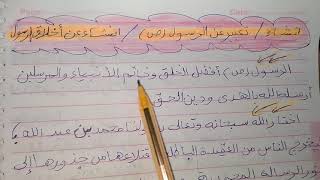 انشاء / تعبير عن الرسول (ص) / انشاء عن أخلاق الرسول
الرسول (ص) أفضل الخلق وخاتم الأنبياء والمرسلين
أرسله الله بالهدى ودين الحق
اختار الله سبحانه وتعالى سيدنا محمد بن عبد الله
ليخرج الناس من العقيدة الباطلة من جذورها إلى
نور الرسالة